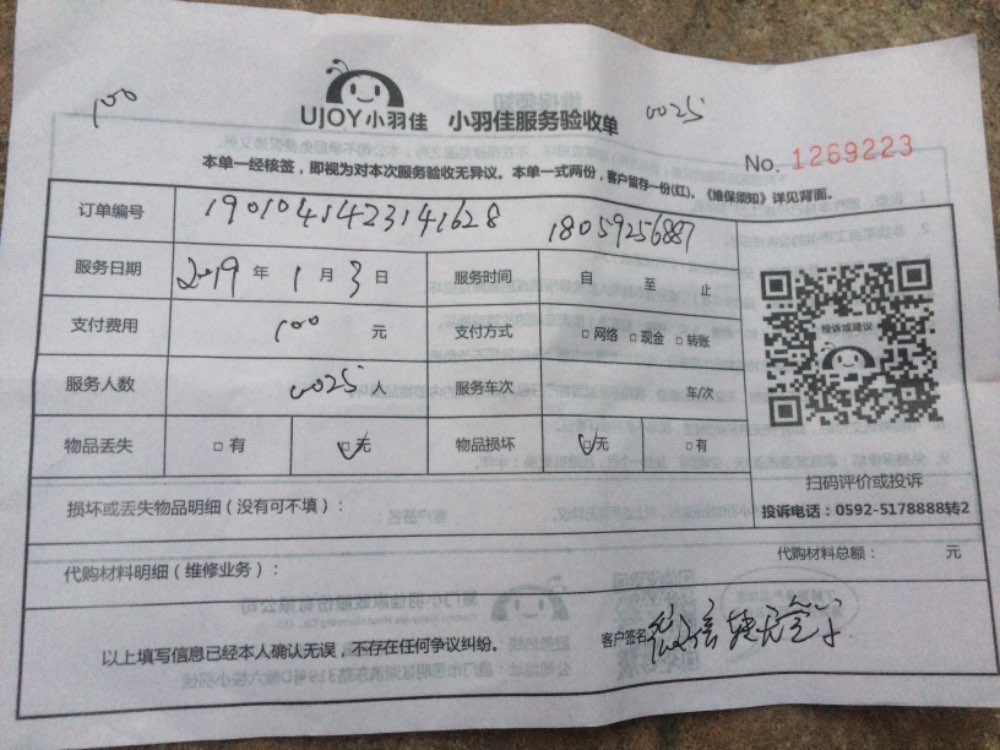 100
UJOY小羽佳 小羽佳服务验收单 0025
No. 1269223
本单一经核签，即视为对本次服务验收无异议。本单一式两份，客户留存一份(红)。《维保须知》详见背面。
订单编号 1901041423141628 18059256887
服务日期 2019 年 1 月 3 日 服务时间 自 至 止
支付费用 100 元 支付方式 □网络 □现金 □转账
投诉或建议
服务人数 0025 人 服务车次 车/次
物品丢失 □有 ☑无 物品损坏 ☑无 □有
扫码评价或投诉
损坏或丢失物品明细（没有可不填）：
投诉电话：0592-5178888转2
代购材料明细（维修业务）： 代购材料总额： 元
以上填写信息已经本人确认无误，不存在任何争议纠纷。 客户签名